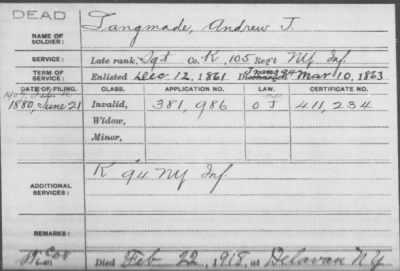 DEAD
NAME OF SOLDIER: Langmade, Andrew J.
SERVICE: Late rank, Sgt Co. K, 105 Reg't NY Inf.
TERM OF SERVICE: Enlisted Dec. 12, 1861 Discharged Mar 10, 1863
Trans 94
DATE OF FILING. CLASS. APPLICATION NO. LAW. CERTIFICATE NO.
1880, June 21 Invalid, 381,986 O J 411,234
Widow,
Minor,
ADDITIONAL SERVICES: K 94 NY Inf.
REMARKS:
Died Feb 22, 1918, at Delavan NY